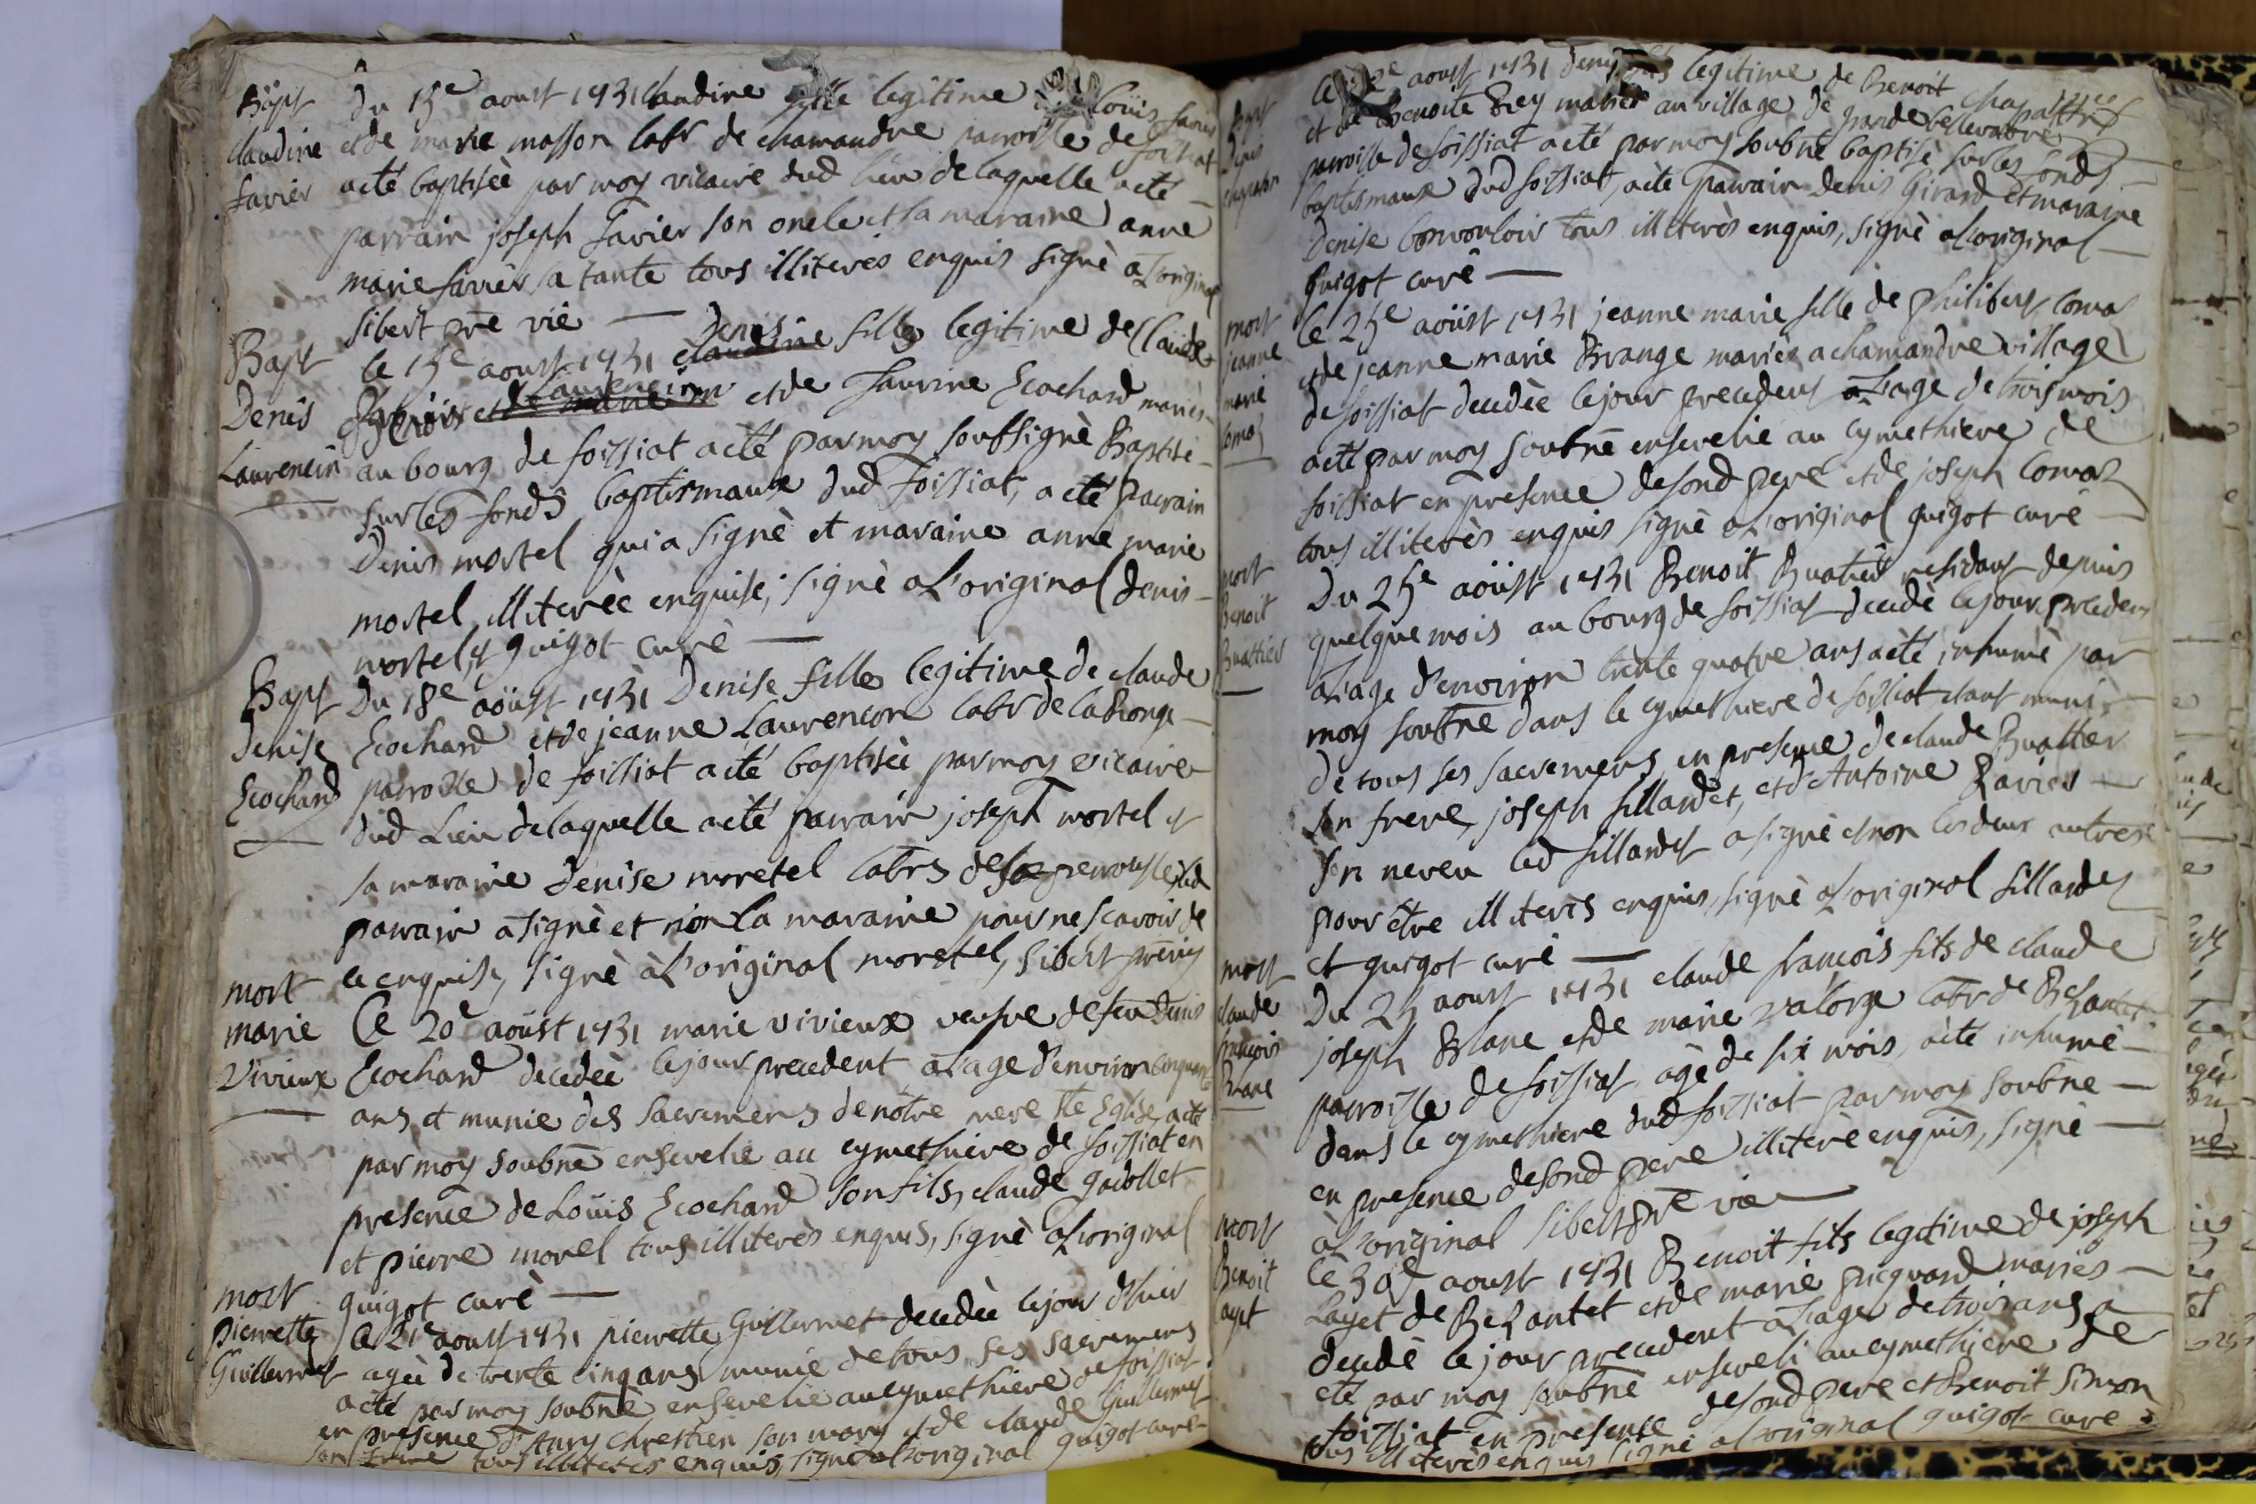 Bapt
claudine
favier
Du 15e aoust 1731 claudine fille legitime de Loüis favier
et de marie masson labr de chamandre parroisse de foissiat
a eté baptiseè par moy vicaire dud lieu de laquelle a eté
parrain joseph favier son oncle et la maraine anne
marie favier sa tante tous illiterés enquis signé a L'original
Sibert pre vic
Bapt
Denis
Laurencin
le 15e aoust 1731 claudine Denis fille legitime de Claude
et de marie Laurencin et de Laurine Ecochard mariés
au bourg de foissiat a eté par moy soussigné Baptisé
sur les fonds baptismaux dud foissiat, a eté parrain
Denis mortel qui a signè et maraine anne marie
mortel illiterée enquise, signè a L'original Denis
mortel, et guigot curè
Bapt
denise
Ecochard
Du 18e aoüst 1731 Denise fille legitime de claude
Ecochard et de jeanne Laurencon labr de
parroisse de foissiat a eté baptiseè par moy vicaire
dud Lieu de laquelle a eté parrain joseph mortel et
sa maraine denise moretel labrs de led
parrain a signè et non la maraine pour ne scavoir de
ce enquise, signè à L'original moretel, Sibert
mort
marie
Vivieux
Ce 20e aoüst 1731 marie vivieux veufve de feu Denis
Ecochard decedeè le jour precedent a L'age d'environ cinquante
ans et munie des sacremens de nôtre mere ste Eglise, a eté
par moy soubnè ensevelie au cymethiere de foissiat en
presence de Loüis Ecochard son fils, claude gaillet
et pierre morel tous illiterès enquis, signè a L'original
guigot curè
mort
pierrette
Guillermet
Ce 21e aoust 1731 pierrette Guillermet decedèe le jour d'hier
ageè de trente cinq ans munie de tous ses sacremens
a eté par moy soubnè ensevelie au cymethiere de foissiat
en presence d' chrestien son mary et de claude Guillermet
son frere tous illiterés enquis, signè a L'original guigot curé
Bapt
Denis
Ce aoust 1731 denis fils legitime de Benoit
et de Benoite Brey mariés au village de
parroisse de foissiat a eté par moy soubnè baptisè sur les fonds
baptismaux dud foissiat, a eté parrain Denis Girard et maraine
Denise bonvouloir tous illiterès enquis, signè a L'original
guigot curé
mort
jeanne
marie
comaz
Ce 25e aoüst 1731 jeanne marie fille de philibert comaz
et de jeanne marie Brange mariés a chamandre village
de foissiat decedèe le jour precedent a L'age de trois mois
a eté par moy soubnè ensevelie au cymethiere de
foissiat en presence de sond pere et de joseph comaz
tous illiterès enquis signè a L'original guigot curé
mort
Benoit
Buattier
Du 25e aoüst 1731 Benoit Buatier residant depuis
quelque mois au bourg de foissiat decedè le jour precedent
a L'age d'environ trente quatre ans a eté inhumè par
moy soubnè dans le cymethiere de foissiat etant muni
de tous ses sacremens en presence de claude Buattier
son frere, joseph fillardet, et d'Antoine
son neveu led fillardet a signè et non les deux autres
pour être illiterés enquis, signè a L'original fillardet
et guigot curé
mort
claude
françois
Blanc
Du 25 aoust 1731 claude francois fils de claude
joseph Blanc et de marie Valorge labr de Bezantet
parroisse de foissiat agè de six mois, a eté inhumè
dans le cymethiere dud foissiat par moy soubnè
en presence de sond pere illiterè enquis, signè
à L'original Sibert pre vic
mort
Benoit
Layet
Ce 30e aoust 1731 Benoit fils legitime de joseph
Layet de Bezantet et de marie mariés
decedè le jour precedent a L'age de trois ans a
eté par moy soubnè enseveli au cymethiere de
foissiat en presence de sond pere et Benoit Simon
tous illiterès enquis signè a L'original guigot curé